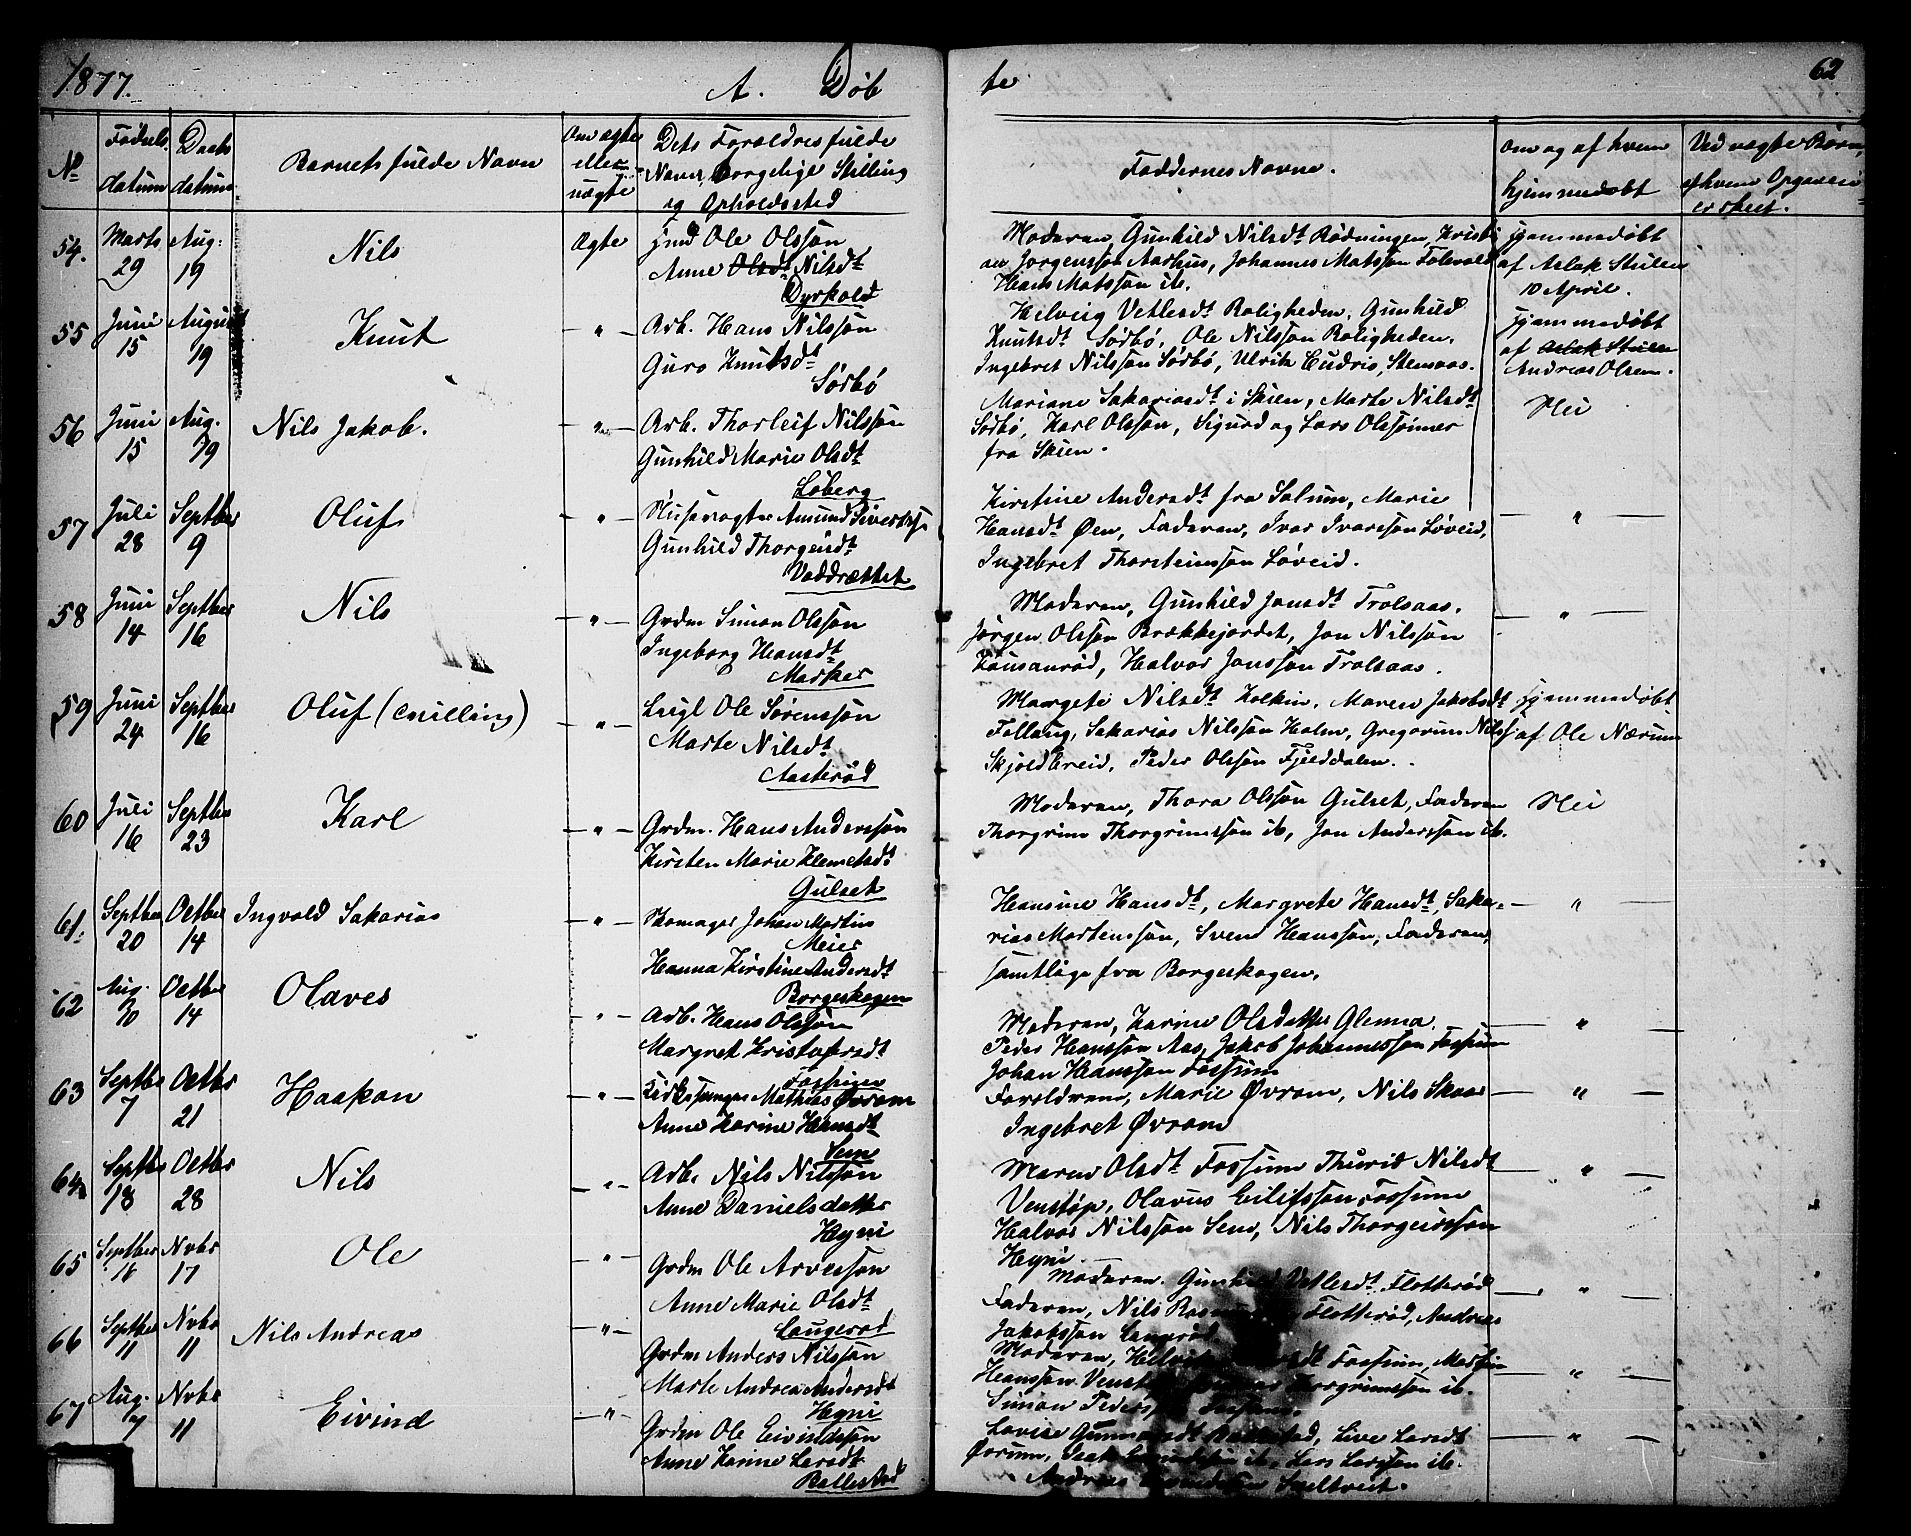 1877.
A. Døb
te
62
No
Fødsels
datum
Daabs
datum
Barnets fulde Navn
Om ægte
eller
uægte
Dets Forældres fulde
Navn, borgelige Stilling
og Opholdssted
Faddernes Navne.
Om og af hvem
hjemmedøbt
Ved uægte Børn,
af hvem Opgaven
er skeet.
54.
Marts
29
Aug.
19
Nils
Ægte
Ole Olssøn
Anne Olsdt Nilsdt
Dyrkold
Moderen, Gunhild Nilsdt Rødningen, Kristi
an Jørgenssøn Aarhus, Johannes Matssøn
Hans Matssøn ib.
Hjemmedøbt
af Aslak Stulen
10 April.
55
Juni
15
August
19
Knut
"
Arb. Hans Nilssøn
Guro Knutsdt
Sørbø
Helvig Vetlesdt Roligheden, Gunhild
Knutsdt Sørbø, Ole Nilssøn Roligheden,
Ingebret Nilssøn Sørbø, Ulrik Stensaas.
Hjemmedøbt
af Aslak Stulen
Andreas Olsen.
56
Juni
15
Aug.
19
Nils Jakob.
"
Arb. Thorleif Nilssøn
Gunhild Marie Olsdt
Løberg
Mariane Sakariasdt i Skien, Marte Nilsdt
Sørbø, Karl Olssøn, Sigurd og Lars Olssønner
fra Skien.
Nei
57
Juli
28
Septber
9
Oluf
"
Slusevogter Amund Sivertss.
Gunhild Thorgersdt
Vaddrættet
Kirstine Andersdt fra Solum, Marie
Hansdt Øen, Faderen, Ivar Ivarssøn Løveid,
Ingebret Thorsteinssøn Løveid.
"
58
Juni
14
Septber
16
Nils
"
Grdm Simon Olssøn
Ingeborg Hansdt
Marker
Moderen, Gunhild Jonsdt Trolsaas,
Jørgen Olssøn Brækkejordet, Jon Nilssøn
Halvor Jonssøn Trolsaas.
"
59
Juni
24
Septber
16
Oluf (tvilling)
"
Leigl Ole Sørenssøn
Marte Nilsdt
Aasterød
Margete Nilsdt Kolkin, Maren Jakobsdt
Follaug, Sakarias Nilssøn Holm, Gregorius Nilss
Skjoldbreid, Peder Olssøn Fjelddalen.
Hjemmedøbt
af Ole Nærum
60
Juli
16
Septber
23
Karl
"
Grdm. Hans Anderssøn
Kirsten Marie Klemetsdt
Gulset
Moderen, Thora Olssøn Gulset, Faderen
Thorgrim Thorgrimssøn ib, Jon Anderssøn ib.
Nei
61.
Septber
20
Octber
14
Ingvald Sakarias
"
Skomager Johan Martin
Meier
Hanna Kirstine Andersdt
Borgeskogen
Hansine Hansdt, Margrete Hansdt, Saka-
rias Mortenssøn, Svend Hanssøn, Faderen,
samtlige fra Borgeskogen.
"
62
Aug.
10
Octber
14
Olaves
"
Arb. Hans Olssøn
Margret Kristofersdt
Fossum
Moderen, Karine Olsdatter Glenna.
Peder Hanssøn Aas, Jakob Johannessøn Fossum
Johan Hanssøn Fossum
"
63
Septber
7
Octbr
21
Haakon
"
Kirkesanger Mathias Øvrom
Anne Karine Hansdt
Sem
Forældrene, Marie Øvrom, Nils Skaar
Ingebret Øvrom
"
64
Septbr
18
Octbr
28
Nils
"
Arb. Nils Nilssøn
Anne Danielsdatter
Hyni
Maren Olsdt Fossum Thurid Nilsdt
Venstøp, Olavus Eilifssøn Fossum
Halvor Nilssøn Sem, Nils Thorgerssøn
Hyni
"
65
Septber
16
Nvbr
17
Ole
"
Grdm Ole Arvessøn
Anne Marie Olsdt
Laugerød
Moderen. Gunhild Vetlesdt Flotterød
Faderen, Nils Flotterød, Andreas
Jakobssøn Laugerød
"
66
Septber
11
Nvbr
11
Nils Andreas
"
Grdm Anders Nilssøn
Marte Andrea Andersdt
Hyni
Moderen, Fossum, Martin
Hanssøn Thorgrimssøn ib.
Simon Peders Fossum.
"
67
Aug.
7
Nvbr
11
Eivind
"
Grdm Ole Eivindssøn
Anne Karine Larsdt
Ballestad
Lovise Ballestad, Live Larsdt
Ørum, Isak ib, Lars Larssøn ib.
Andreas
"